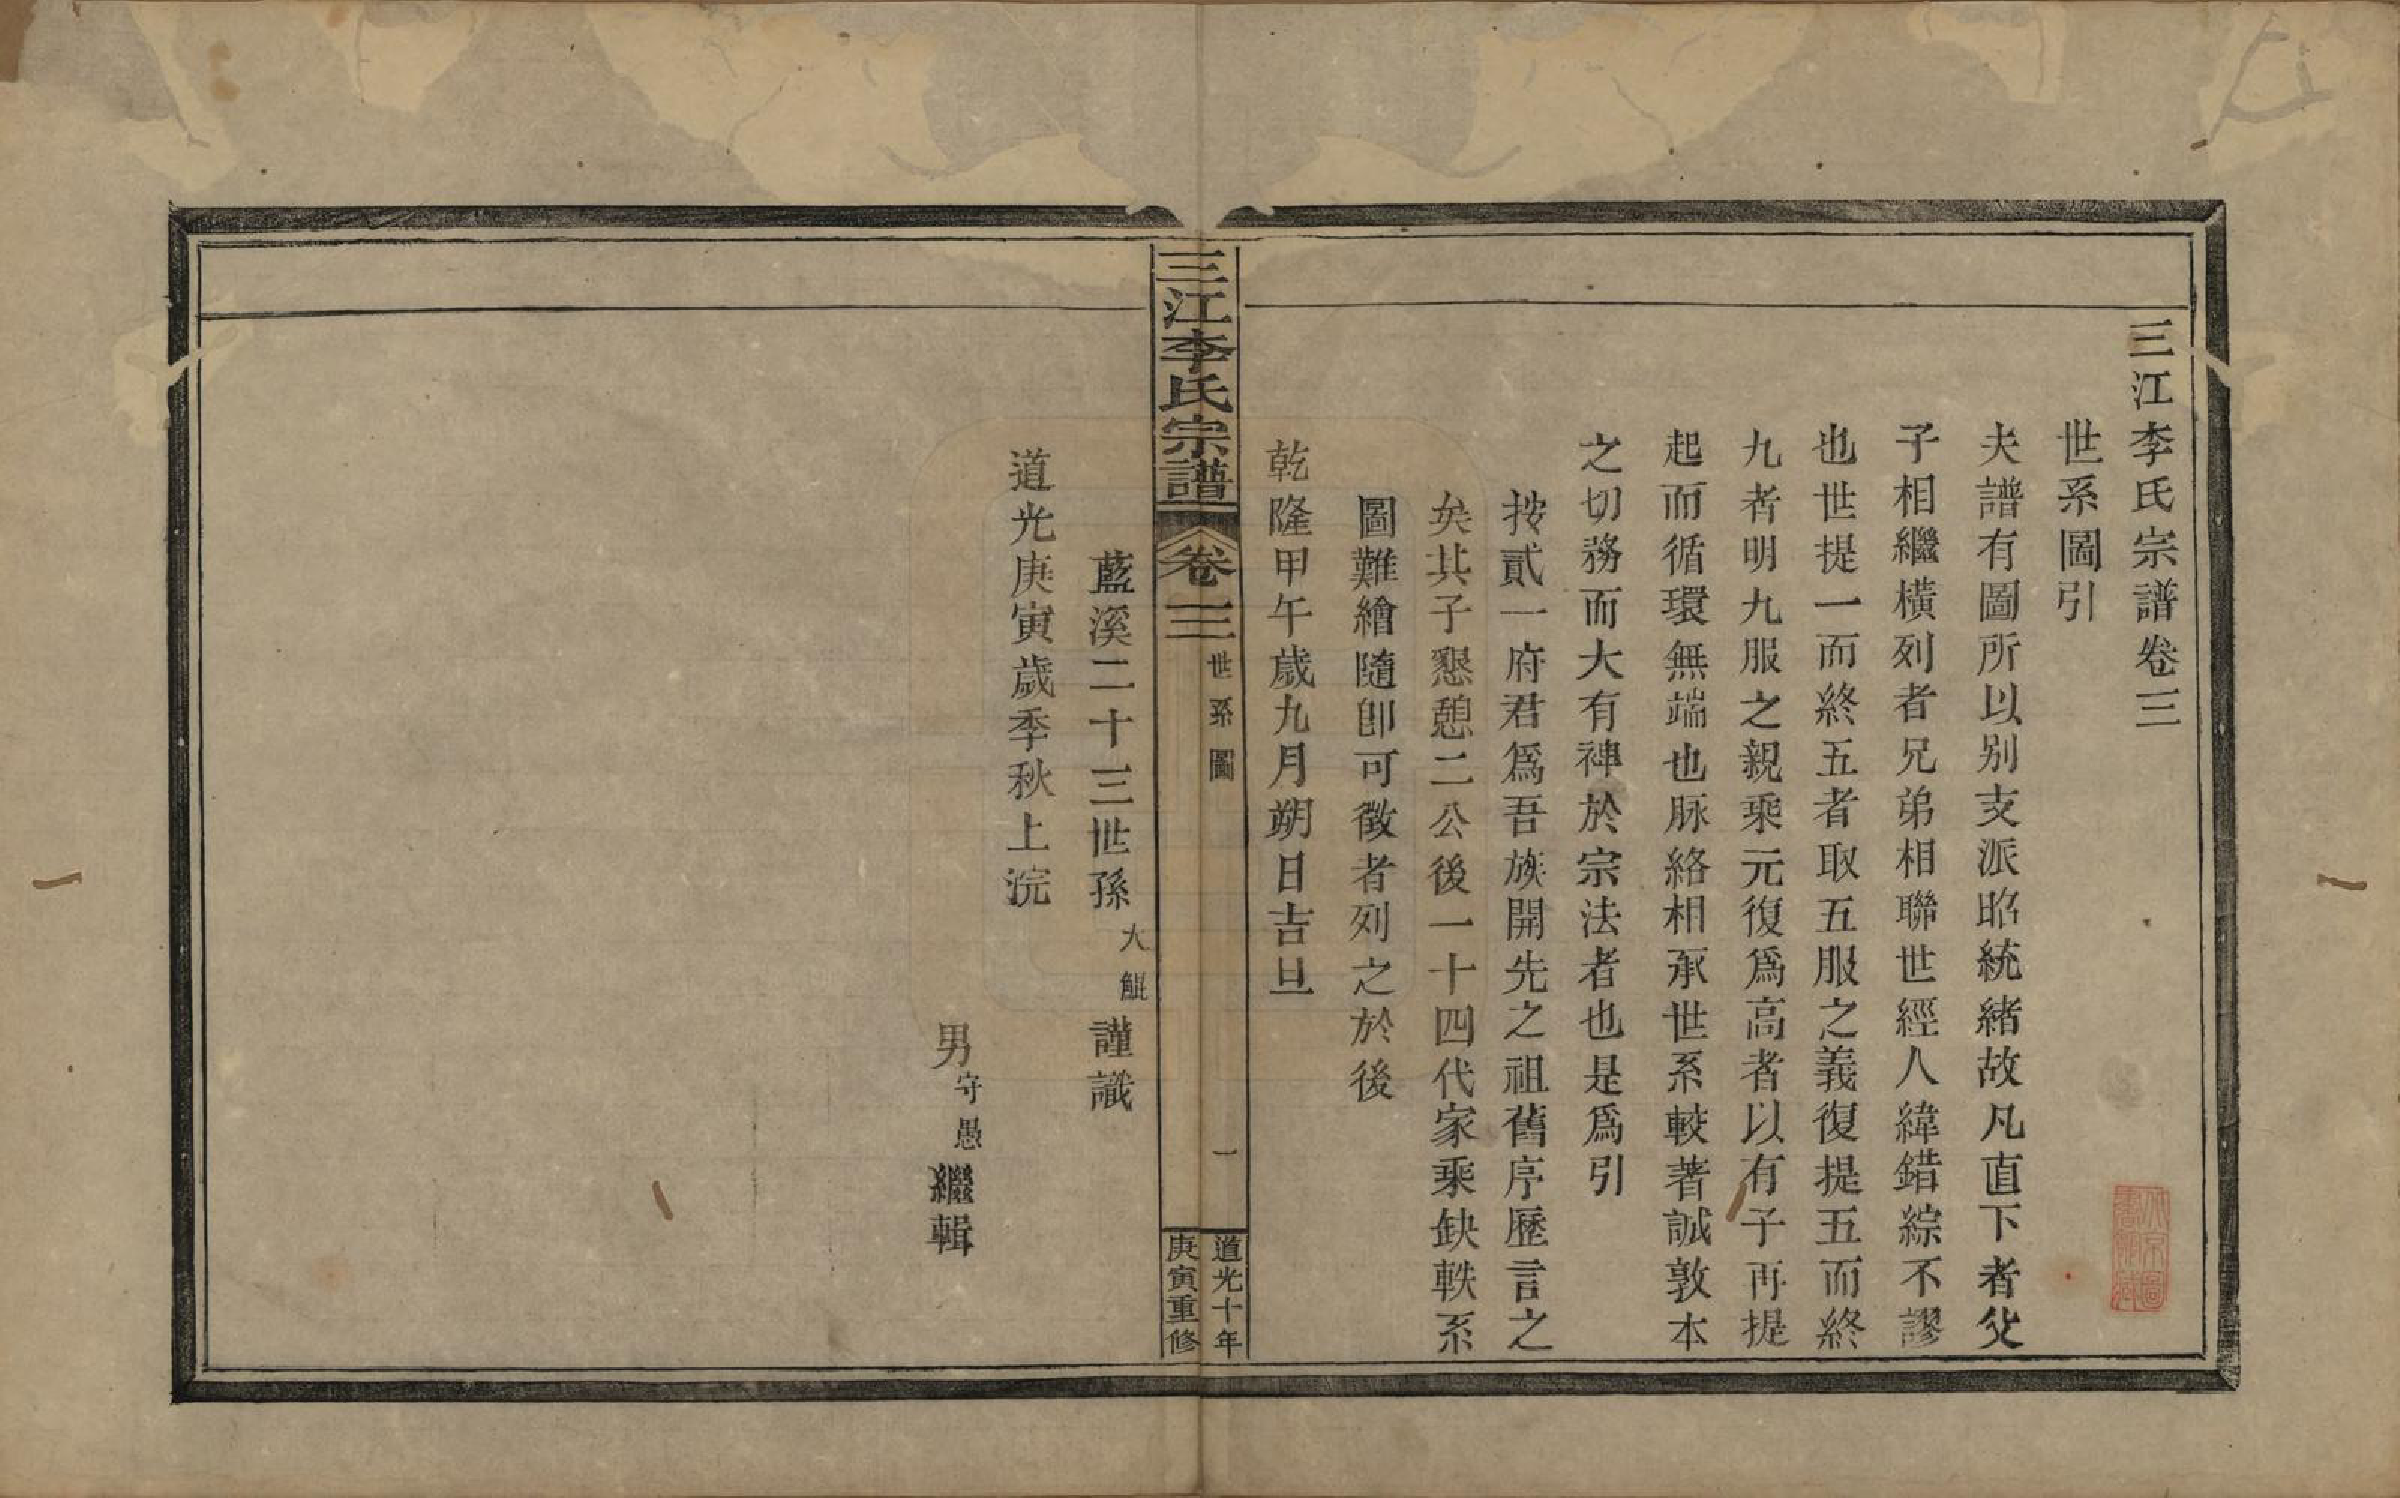 三江李氏宗譜卷三
世系圖引
夫譜有圖所以別支派昭統緒故凡直下者父
子相繼橫列者兄弟相聯世經人緯錯綜不謬
也世提一而終五者取五服之義復提五而終
九者明九服之親乘元復爲高者以有子再提
起而循環無端也脉絡相承世系較著誠敦本
之切務而大有裨於宗法者也是爲引
按貳一府君爲吾族開先之祖舊序歷言之
矣其子懇憩二公後一十四代家乘缺軼系
圖難繪隨卽可徵者列之於後
乾隆甲午歲九月朔日吉旦
三江李氏宗譜
卷三
世系圖
一
道光十年
庚寅重修
藍溪二十三世孫大鯤謹識
道光庚寅歲季秋上浣
男守愚繼輯